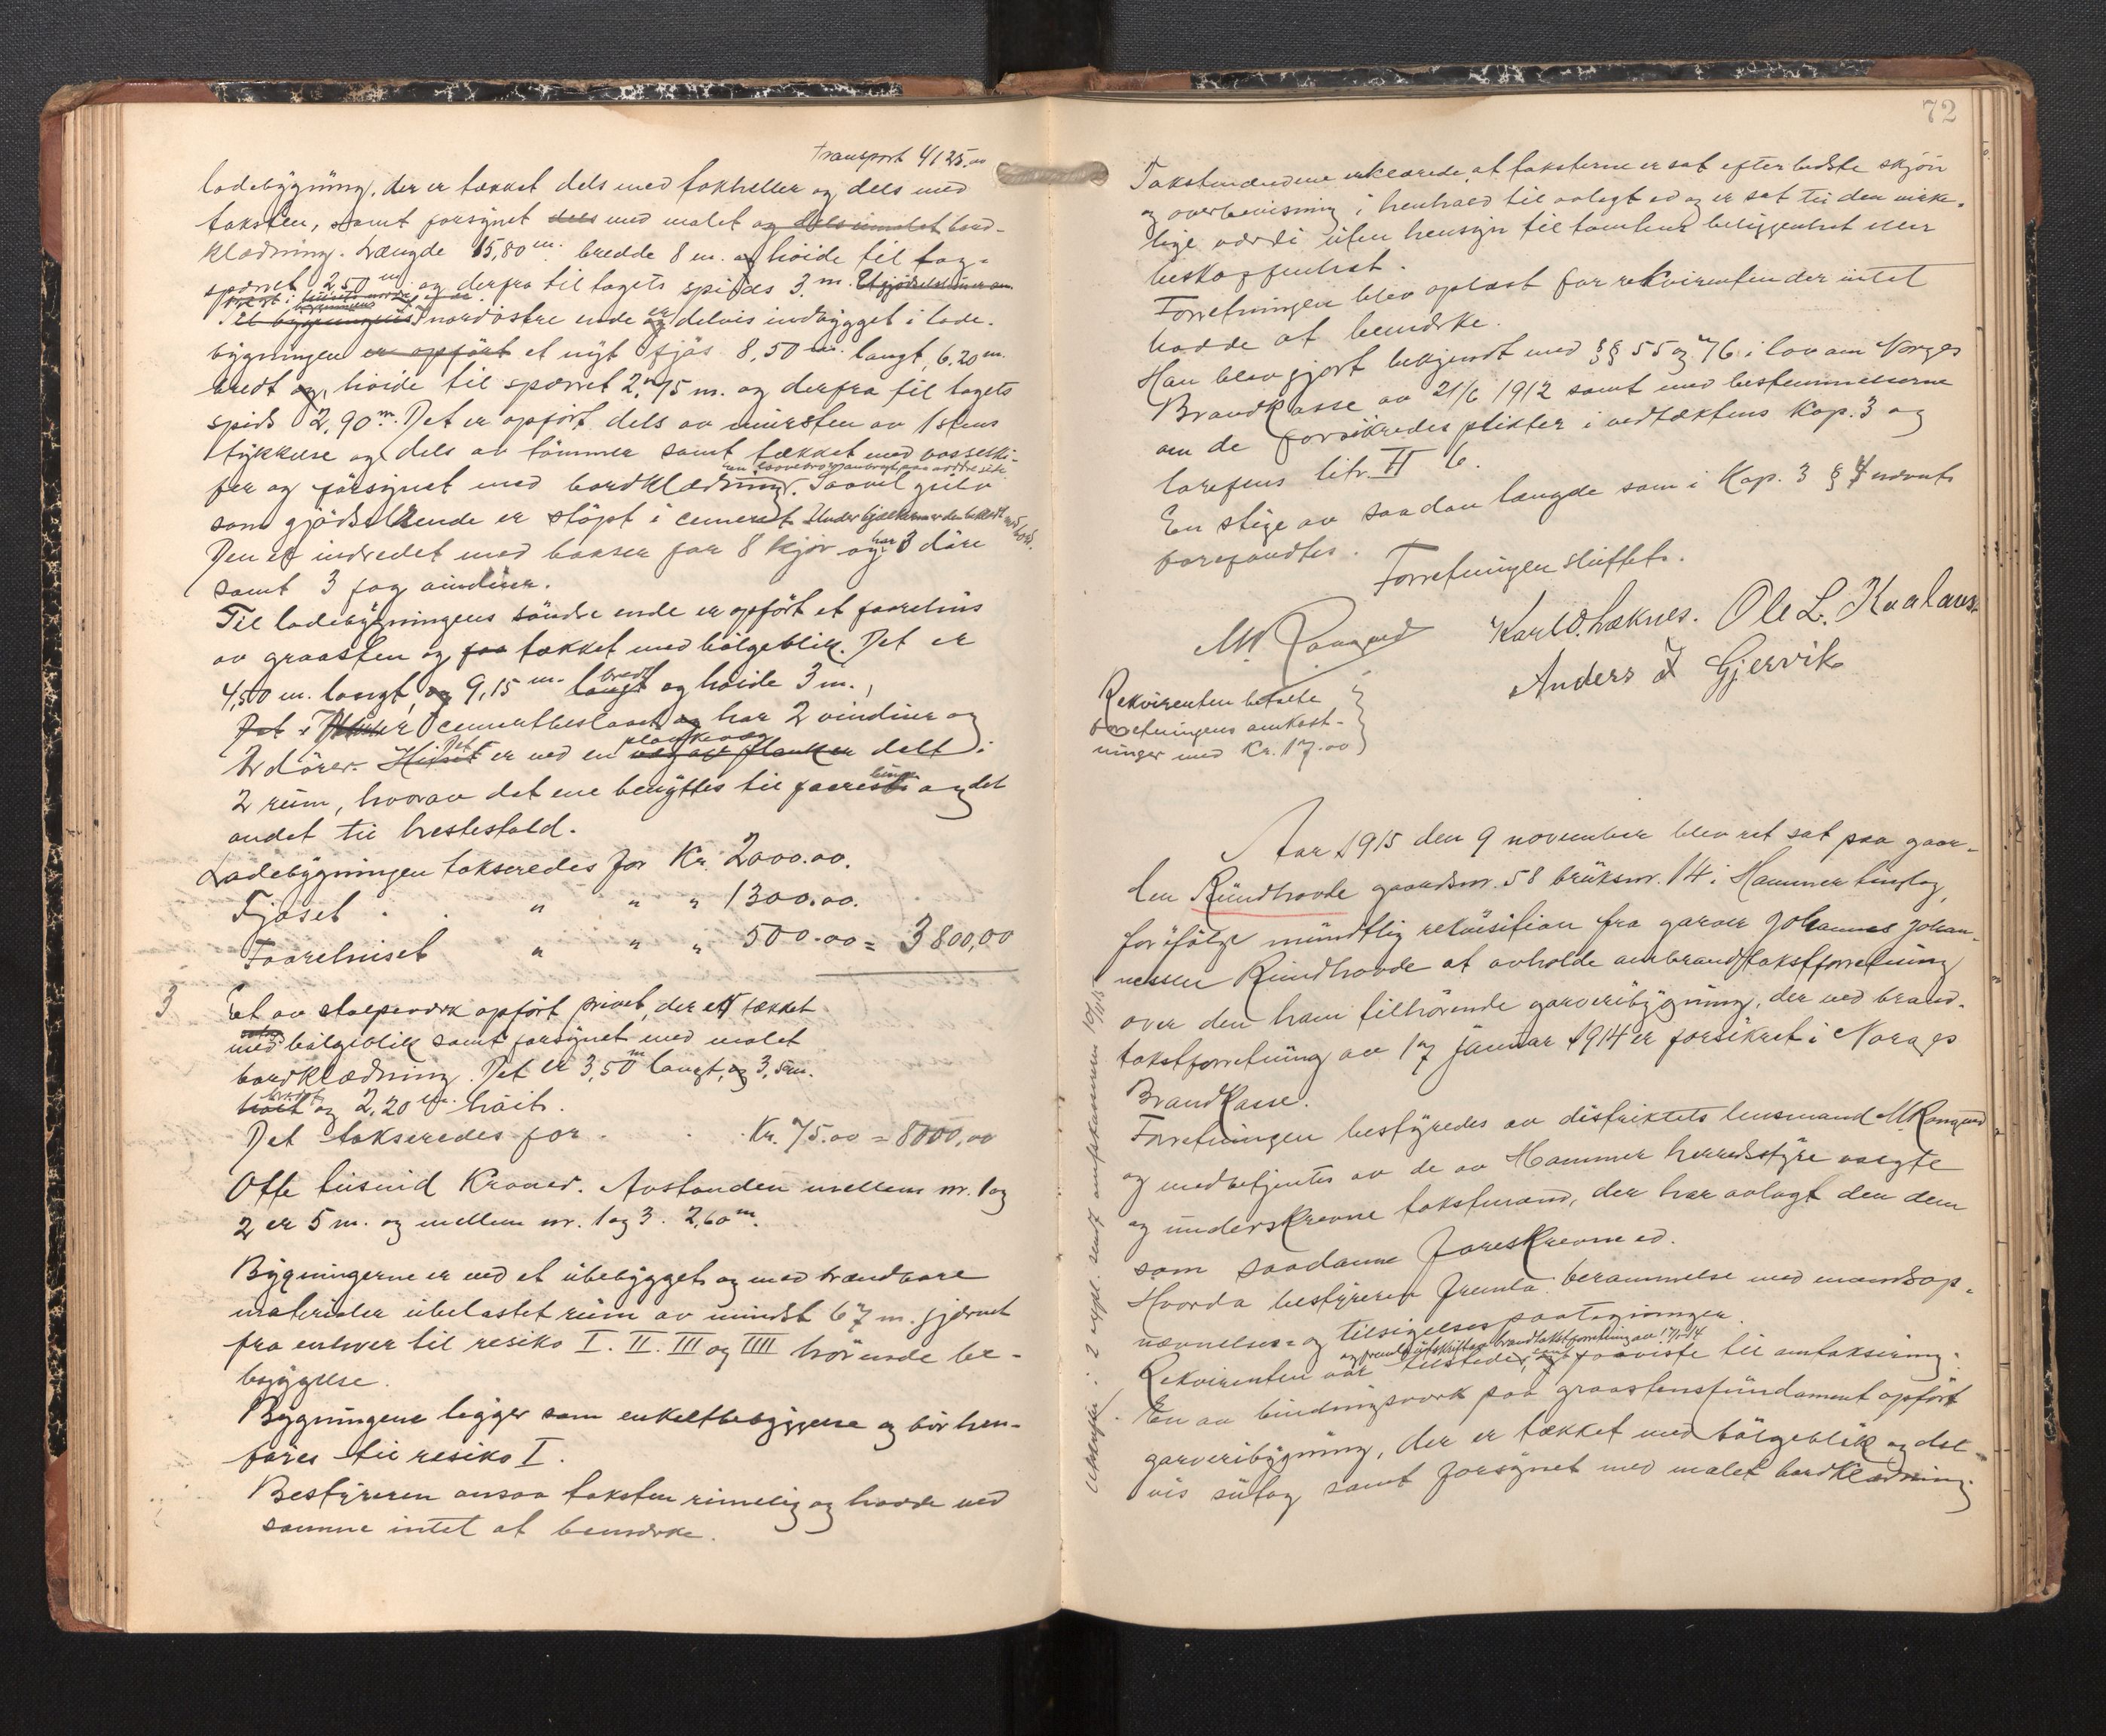 Transport 4125.00
ladebygning, der er tækket dels med takheller og dels med
taksten, samt forsynet dels med malet og dels umalet bord-
klædning. Længde 15,80 m. bredde 8 m. og höide til tag-
sparret 2,50 m og derfra til tagets spids 3 m.
Til bygningens nordöstre ende er delvis indbygget i lade-
bygningen er opfört et nyt fjös 8,50 m. langt, 6.20 m.
bredt og höide til sparret 2,75 m. og derfra til tagets
spids 2,90 m. Det er opfört dels av mursten av 1 stens
tykkelse og dels av tömmer samt tækket med vosseski-
fer og forsynet med bordklædning. Saavel gulv
som gjödselrende er stöpt i cement. Under bjælkerne er den beklædt med bord.
Den er indredet med baaser for 8 kjör og har 3 döre
samt 3 fag vinduer.
Til ladebygningens söndre ende er opfört et faarehus
av graasten og faa tækket med bölgeblik. Det er
4,50 m. langt, og 9,15 m. langt bredt og höide 3 m.,
Det i cementbeslaaet og har 2 vinduer og
2 dörer. Huset Det er ved en væg av planker plankevæg delt i
2 rum, hvorav det ene benyttes til faaresti binge og det
andet til hestestald.
Ladebygningen takseredes for Kr. 2000.00.
Fjöset . . " " " 1300.00.
Faarehuset " " " 500.00 = 3800,00
3 Et av stolpeverk opfört privet, der er tækket
med bölgeblik samt forsynet med malet
bordklædning. Det er 3,50 m langt, og 3,5 m.
höit bredt og 2,20 m. höit.
Det takseredes for . . Kr. 75.00 = 8000,00
Otte tusind Kroner. Avstanden mellem nr. 1 og
2 er 5 m. og mellem nr. 1 og 3. 2,60 m.
Bygningerne er ved et ubebygget og med brændbare
materialer ubelastet rum av mindst 67 m. fjernet
fra enhver til resiko I. II. III og IIII hörende be-
byggelse.
Bygningene ligger som enkeltbebyggelse og bör hen-
föres til resiko I.
Bestyreren ansaa taksten rimelig og havde ved
samme intet at bemerke.
72
Takstmændene erklærede at taksterne er sat efter bedste skjön
og overbevisning i henhold til avlagt ed og er sat til den virke-
lige værdi uten hensyn til tomtens beliggenhet eller
beskaffenhet.
Forretningen blev oplæst for rekvirenten der intet
hadde at bemerke.
Han blev gjort bekjendt med §§ 55 og 76 i lov om Norges
Brandkasse av 21/6 1912 samt med bestemmelserne
om de forsikredes plikter i vedtækters Kap. 3 og
tarefens litr. II 6.
En stige av saadan længde som i Kap. 3 § 4 nævnt
forefandtes.
Forretningen sluttet.
M Rongved Karl O. Læknes. Ole L. Kvalavaa.
Anders J Gjervik
Rekvirenten betalte
forretningens omkost-
ninger med Kr. 17.00
Utskrift i 2 expl. sendt amtskammen 10/11 15
Aar 1915 den 9 november blev ret sat paa gaar-
den Rundhovde gaardsnr. 58 bruksnr. 14 i Hammer tinglag,
forifölge mundtlig rekvisition fra garver Johannes Johan-
nessen Rundhovde at avholde ombrandtakstforretning
over den ham tilhörende garveribygning, der ved brand-
takstforretning av 17 januar 1914 er forsikret i Norges
Brandkasse.
Forretningen bestyredes av distriktets lensmand M Rongved
og medbetjentes av de av Hammer herredsstyre valgte
og underskrevne takstmænd, der har avlagt den dem
som saadanne foreskrevne ed.
Hvorda bestyreren fremla: berammelse med mandsop-
nævnelse- og tilsigelsespaategninger.
og fremla utskrift av brandtakstforretning av 17/1-14
Rekvirenten var tilstede, og paaviste til omtaksering:
En av bindingsverk paa graastensfundament opfört
garveribygning, der er tækket med bölgeblik og del-
vis sutag samt forsynet med malet bordklædning